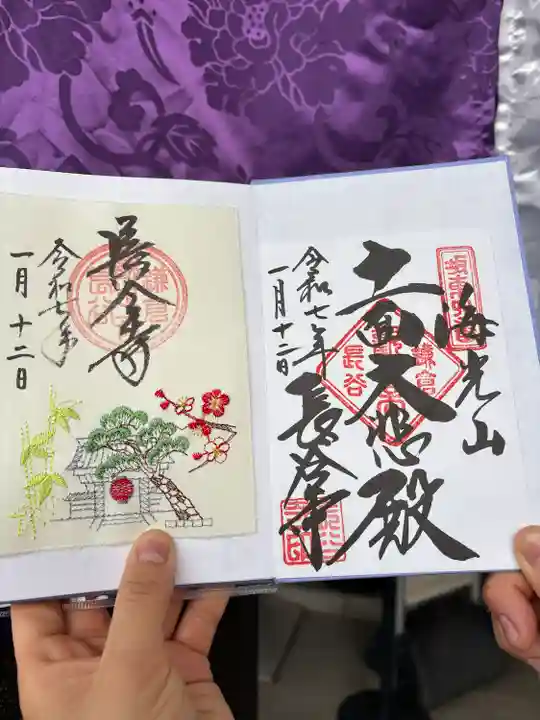 海光山
十一面大悲殿
長谷寺
令和七年
一月十二日
鎌倉
長谷
長谷寺
令和七年
一月十二日
鎌倉
長谷